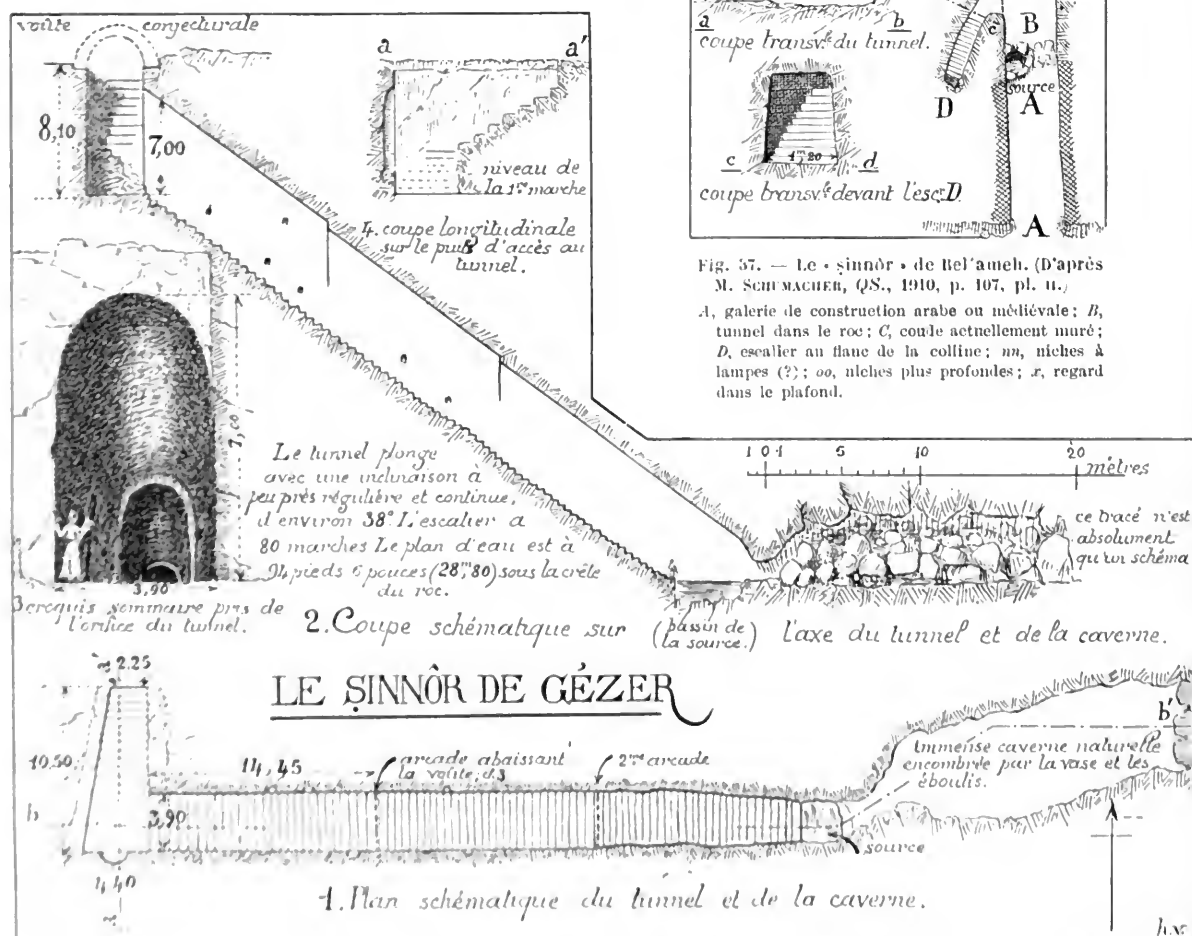 voûte conjecturale
8,10
7,00
a a'
niveau de
la 1re marche
4. coupe longitudinale
sur le puits d'accès au
tunnel.
a b
coupe transv.le du tunnel.
c 1m,20 d
coupe transv.le devant l'esc. D.
c B
source
D A
A
Fig. 37. — Le « ṣinnôr » de Bel'ameh. (D'après
M. SCHUMACHER, QS., 1910, p. 107, pl. II.)
A, galerie de construction arabe ou médiévale; B,
tunnel dans le roc; C, coude actuellement muré;
D, escalier au flanc de la colline; nn, niches à
lampes (?); oo, niches plus profondes; x, regard
dans le plafond.
1 0 1 5 10 20
mètres
7,00
Le tunnel plonge
avec une inclinaison à
peu près régulière et continue,
d'environ 38°. L'escalier a
80 marches. Le plan d'eau est à
94 pieds 6 pouces (28m,80) sous la crête
du roc.
ce tracé n'est
absolument
qu'un schéma
3,90
3 croquis sommaire pris de
l'orifice du tunnel.
2. Coupe schématique sur (bassin de la source.) l'axe du tunnel et de la caverne.
2.25
LE ṢINNÔR DE GÉZER
10,50
14,45
arcade abaissant
la voûte; cf. 3
2me arcade
b'
Immense caverne naturelle
encombrée par la vase et les
éboulis.
b 3,90
source
4,40
1. Plan schématique du tunnel et de la caverne.
h.v.